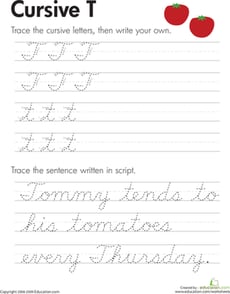 Cursive T
Trace the cursive letters, then write your own.
T T T
T T T
t t t
t t t
Trace the sentence written in script.
Tommy tends to
his tomatoes
every Thursday.
Created by:
education.com
www.education.com/worksheets